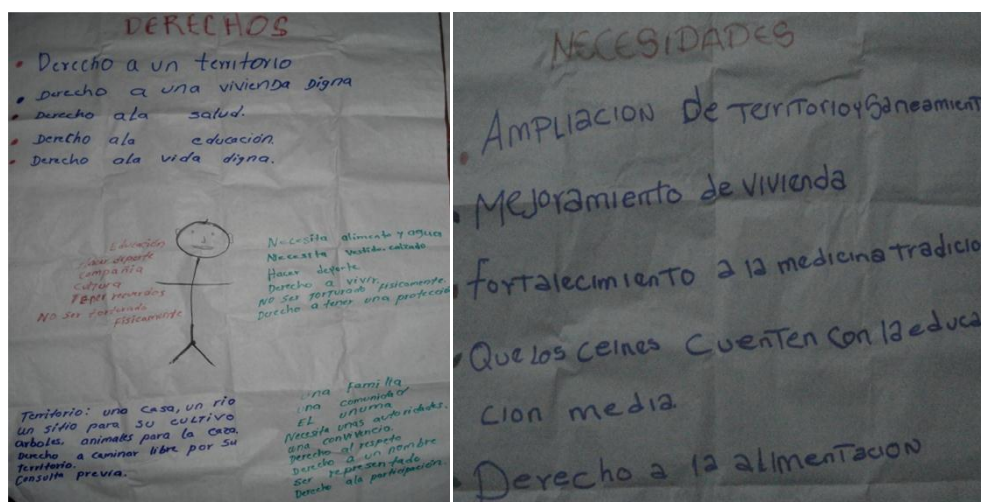 DERECHOS
• Derecho a un territorio
• Derecho a una vivienda Digna
• Derecho ala salud.
• Derecho ala educación.
• Derecho ala vida digna.
Educación
Hacer deporte
Compañia
Cultura
Tener recuerdos
NO Ser torturado
Fisicamente
Necesita alimento y agua
Necesita vestido, calzado
Hacer deporte
Derecho a vivir.
NO Ser torturado fisicamente.
Derecho a tener una protecció
Territorio: una casa, un rio
un sitio para su cultivo
arboles, animales para la caza.
Derecho a caminar libre por su
territorio.
Consulta previa.
una familia
una comunidad
EL unuma
Necesita unas autoridades.
una convivencia.
Derecho al respeto
Derecho a un nombre
Ser representado
Derecho ala participación.
NECESIDADES
• AMPLIACION De Territorio y Saneamient
• Mejoramiento de vivienda
fortalecimiento a la medicina tradicio
• Que los ceines cuenten con la educa
cion media.
• Derecho a la alimentacion